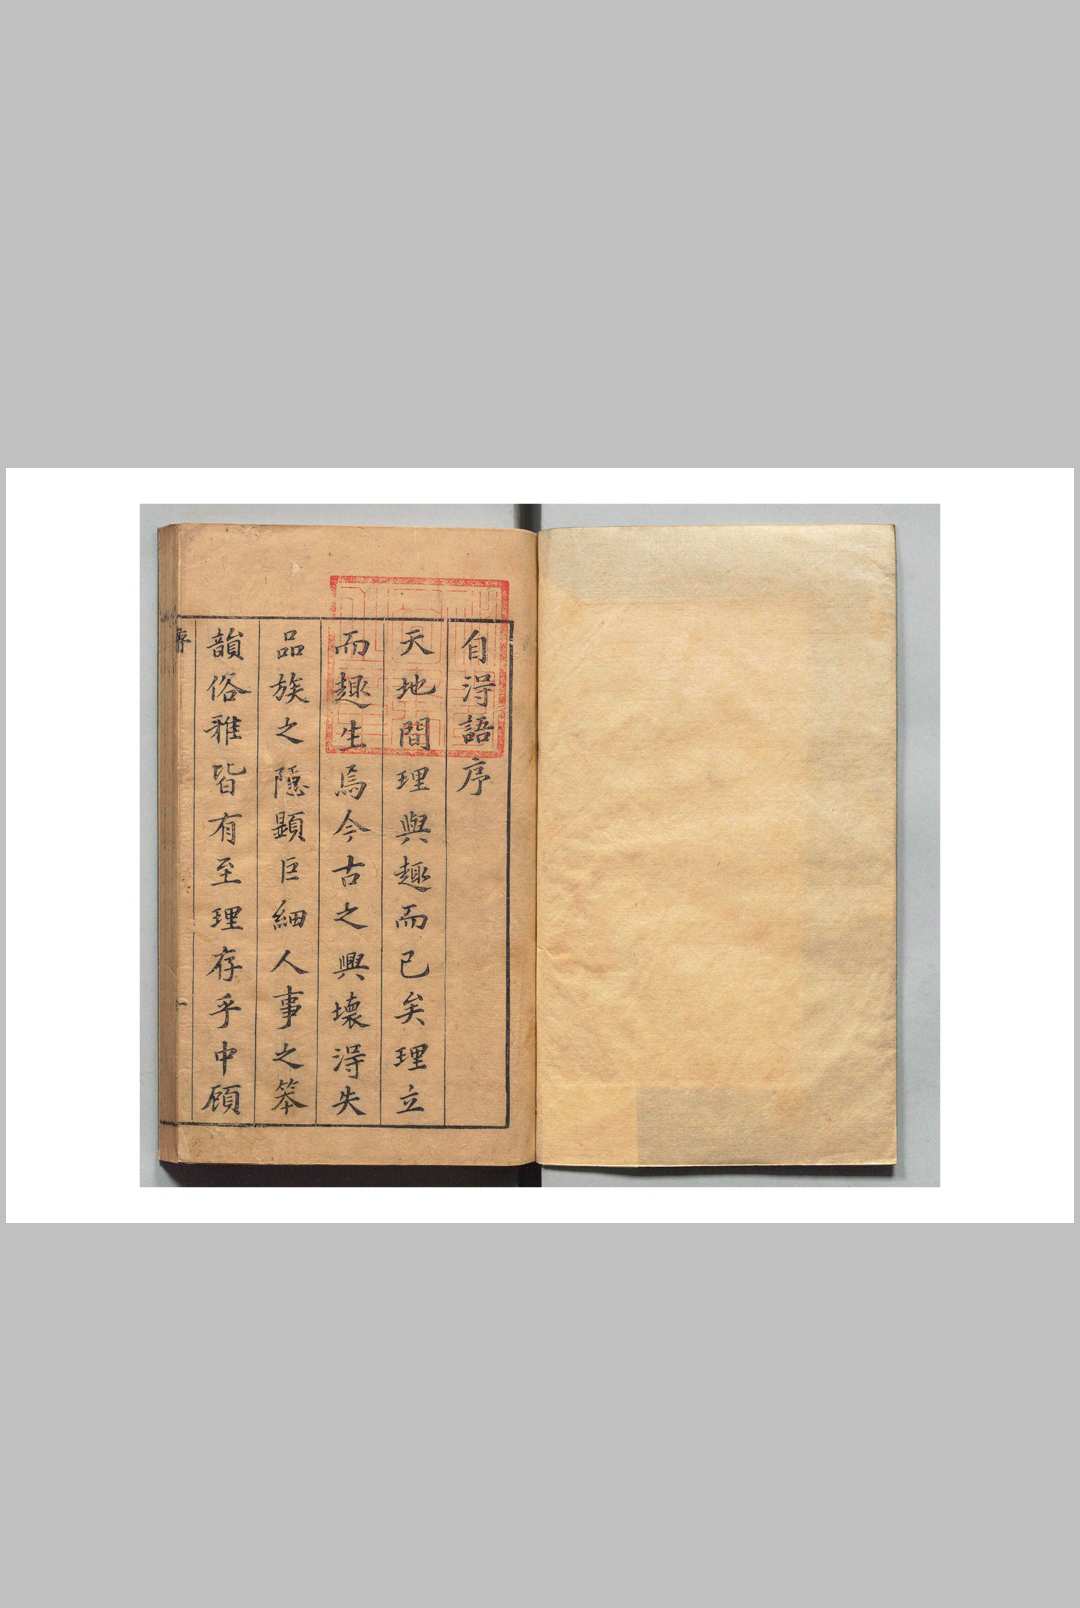 自得語序
天地間理與趣而已矣理立
而趣生焉今古之興壞得失
品族之隱顯巨細人事之笨
韻俗雅皆有至理存乎中顧
序
一